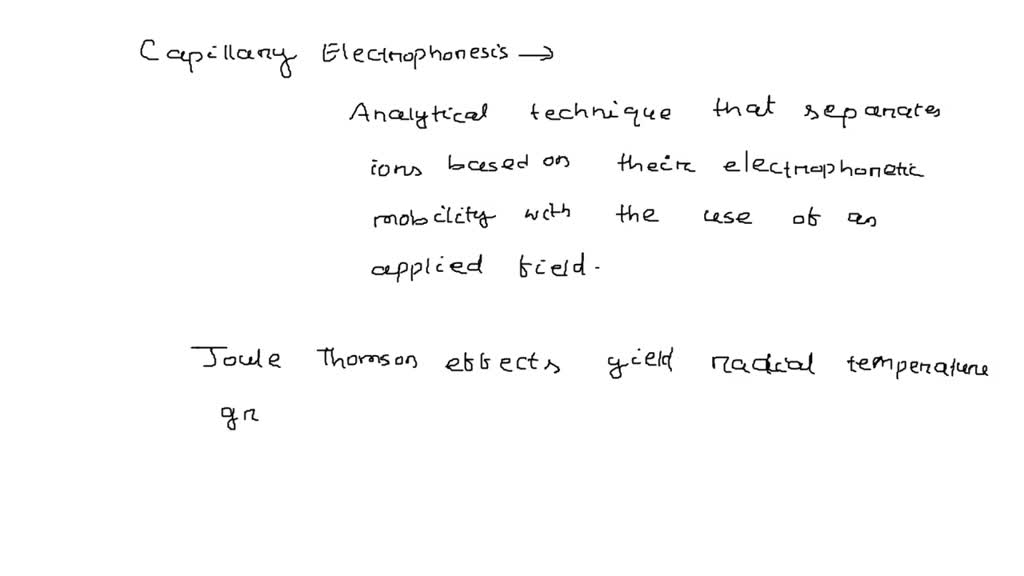 Capillary Electrophoresis →
Analytical technique that separates
ions based on their electrophoretic
mobility with the use of an
applied field.
Joule Thomson effects yield radial temperature
gr